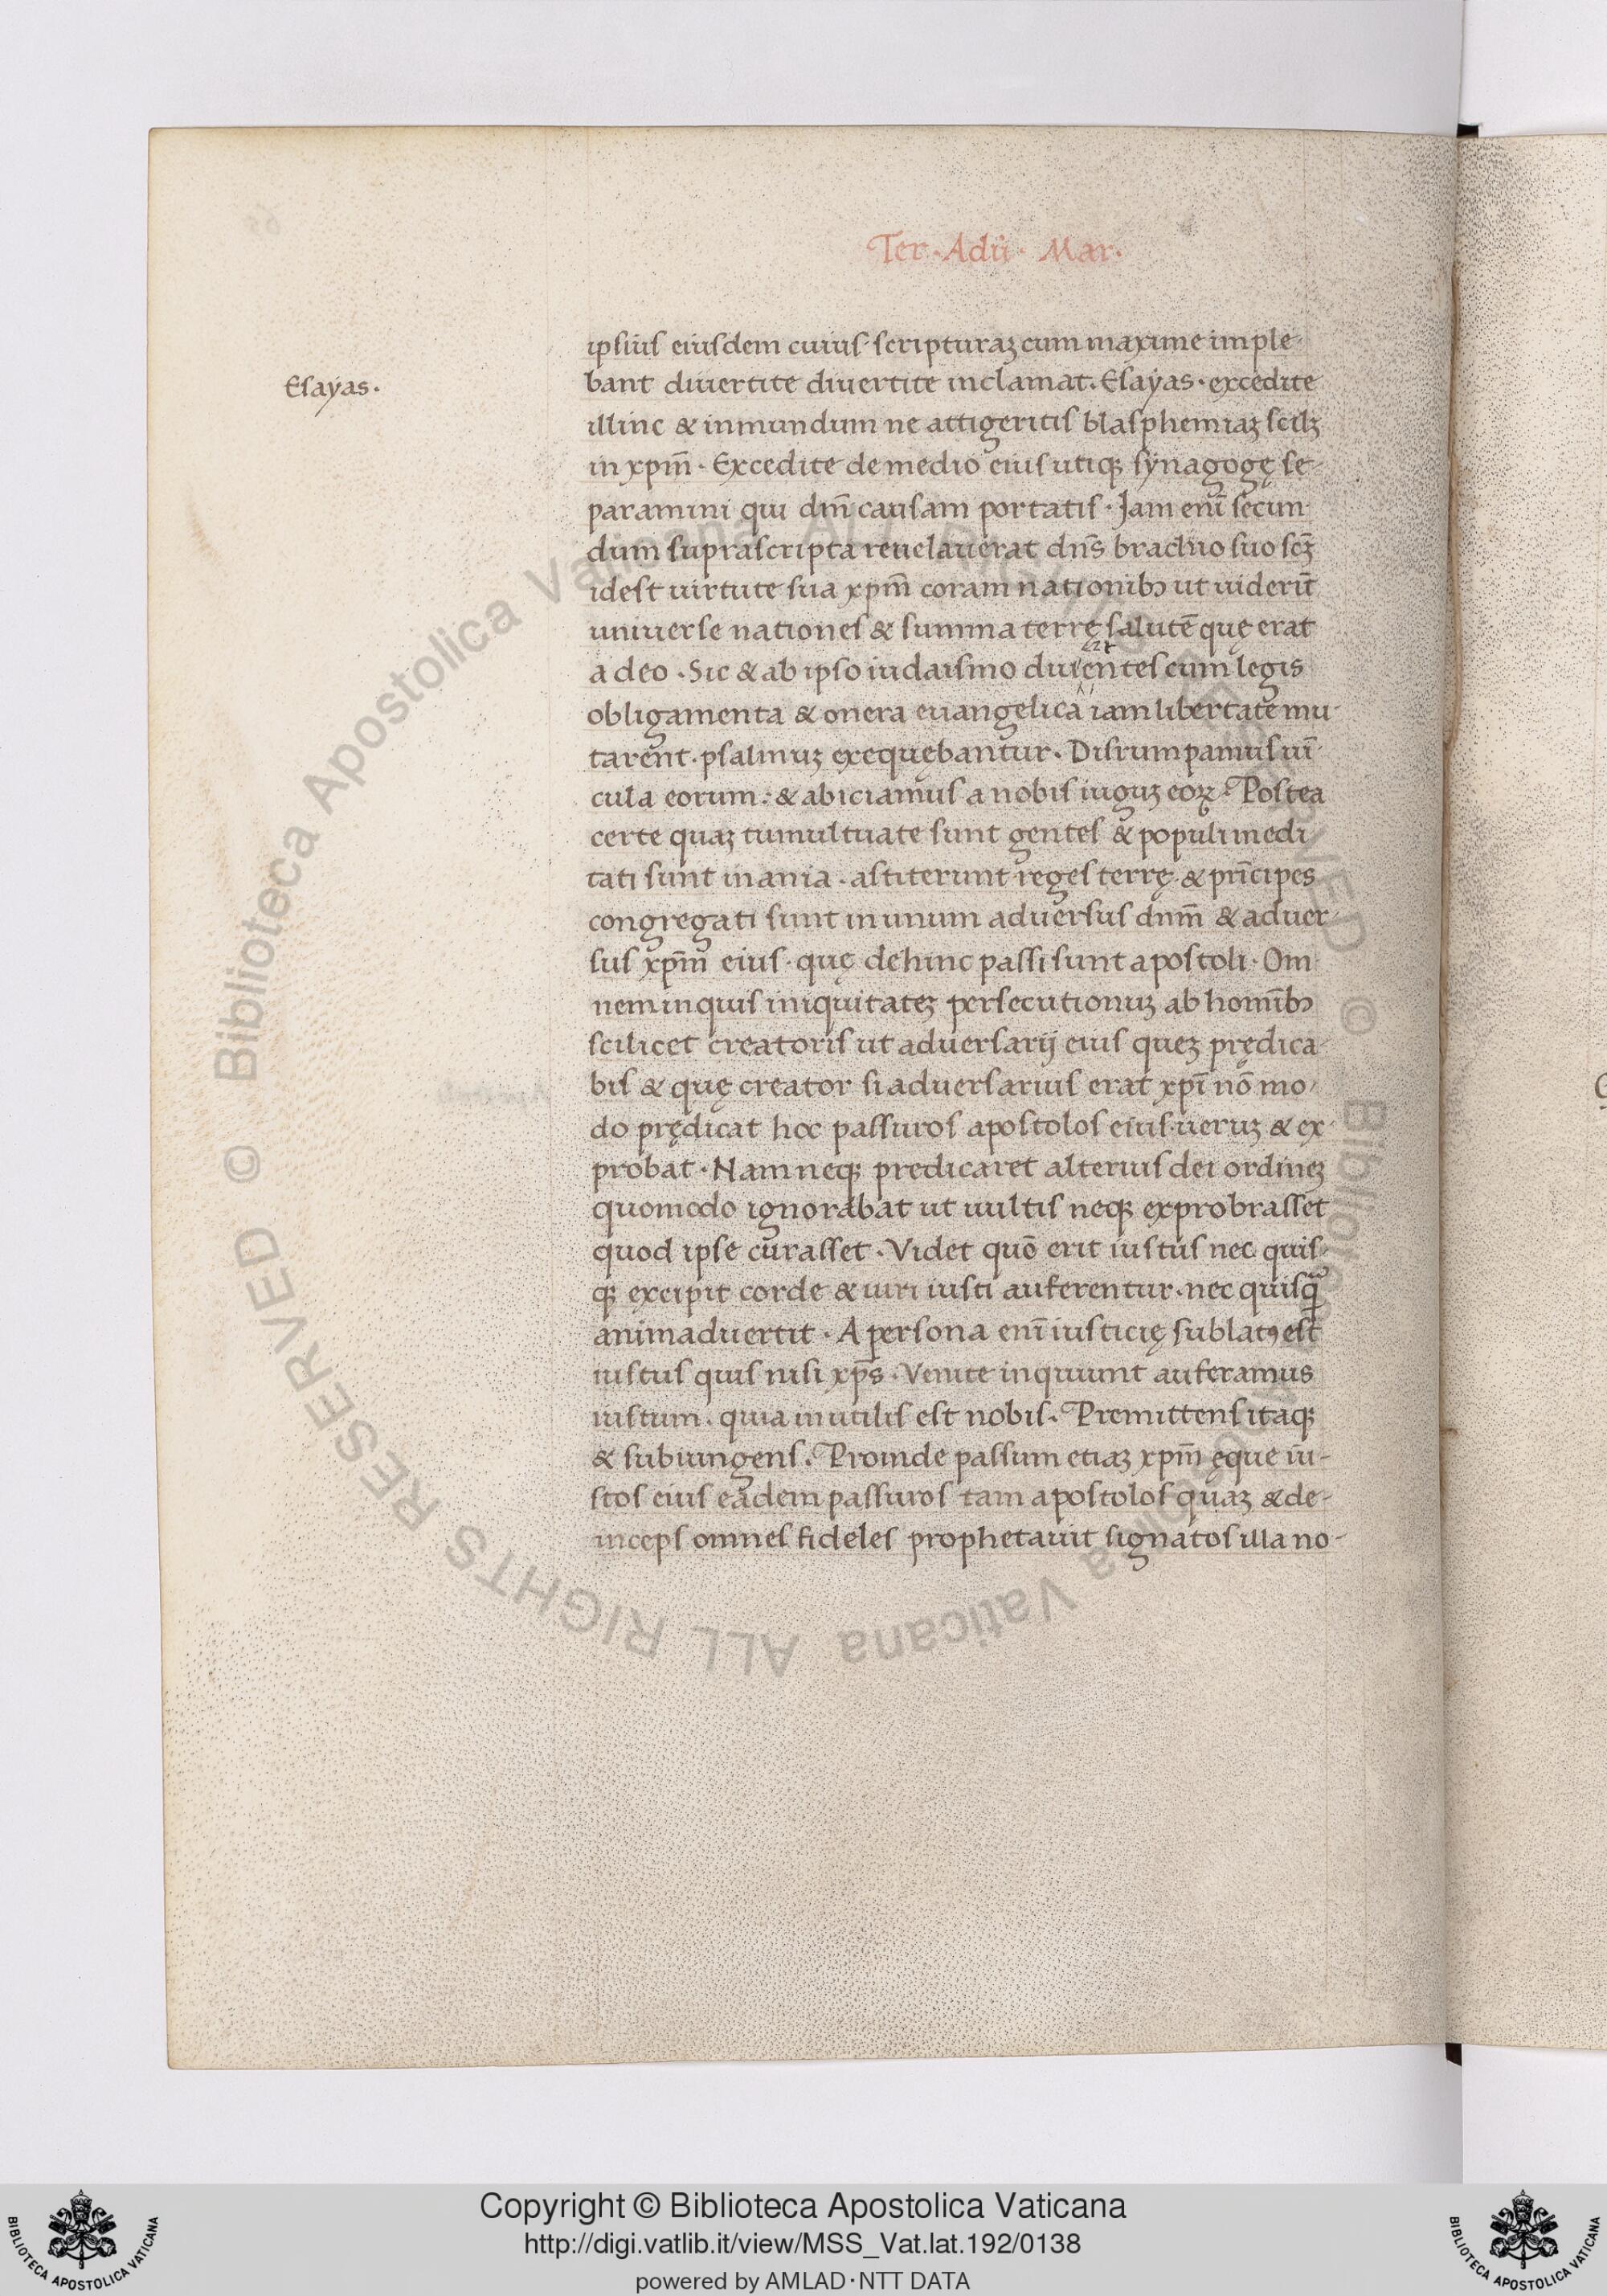 Ter · Adũ · Mar ·
ipsius eiusdem cuius scripturaꝫ cum maxime imple-
Esaÿas ·
bant diuertite diuertite inclamat · Esaÿas · excedite
illinc & inmundum ne attigeritis blasphemiaꝫ scilꝫ
in xpm̃ · Excedite de medio eius utiqꝫ sÿnagogę se-
paramini qui dm̃ causam portatis · Jam enĩ secun
dum suprascripta reuelauerat dñs brachio suo scꝫ̃
idest uirtute sua xpm̃ coram nationibꝫ ut uiderũt
uniuerse nationes & summa terrę salutẽ quę erat
a deo · Sic & ab ipso iudaismo
cum legis
obligamenta & onera euangelica iam libertate mu-
tarent · psalmuꝫ exequębantur · Disrumpamus uĩ-
cula eorum · & abiciamus a nobis iuguꝫ eoꝝ · Postea
certe quaꝫ tumultuate sunt gentes & populi medi
tati sunt inania · astiterunt reges terrę · & prĩcipes
congregati sunt in unum aduersus dnm̃ & aduer-
sus xpm̃ eius · quę dehinc passi sunt apostoli · Om
nem inquis iniquitateꝫ persecutionuꝫ ab homĩbꝫ
scilicet creatoris ut aduersarij eius queꝫ prędica-
bis & quę creator si aduersarius erat xpĩ nõ mo-
do prędicat hoc passuros apostolos eius · ueruꝫ & ex-
probat · Nam neqꝫ predicaret alterius dei ordineꝫ
quomodo ignorabat ut uultis neqꝫ exprobrasset
quod ipse curasset · Videt quõ erit iustus nec quis-
qꝫ excipit corde & uiri iusti auferentur · nec quisꝗ̃
animaduertit · A persona enĩ iusticię sublatꝰ est
iustus quis nisi xps̃ · Venite inquiunt auferamus
iustum · quia inutilis est nobis · Premittens itaqꝫ
& subiungens · Proinde passum etiaꝫ xpm̃ ęque iu-
stos eius eadem passuros tam apostolos quaꝫ & de-
inceps omnes fideles prophetauit signatos illa no-
Copyright © Biblioteca Apostolica Vaticana
http://digi.vatlib.it/view/MSS_Vat.lat.192/0138
powered by AMLAD · NTT DATA
BIBLIOTECA APOSTOLICA VATICANA
BIBLIOTECA APOSTOLICA VATICANA
© Biblioteca Apostolica Vaticana ALL RIGHTS RESERVED © Biblioteca Apostolica Vaticana ALL RIGHTS RESERVED